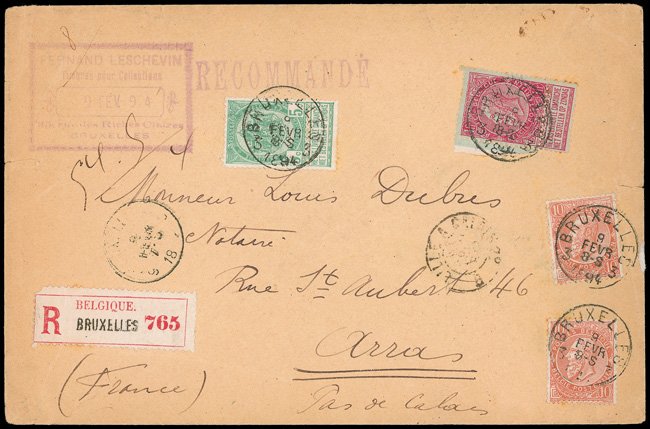 FERNAND LESCHEVIN
Timbres pour Collections
9 FEV 94
BRUXELLES
RECOMMANDÉ
BRUXELLES
9
FEVR
8-S
1894
BRUXELLES
9
FEVR
1894
Monsieur Louis Dubres
Notaire
Rue St. Aubert 46
Arras
(France)
Pas de Calais
R
BELGIQUE.
BRUXELLES 765
10
BRUXELLES
9
FEVR
8-S
BRUXELLES
9
FEVR
8-S
10